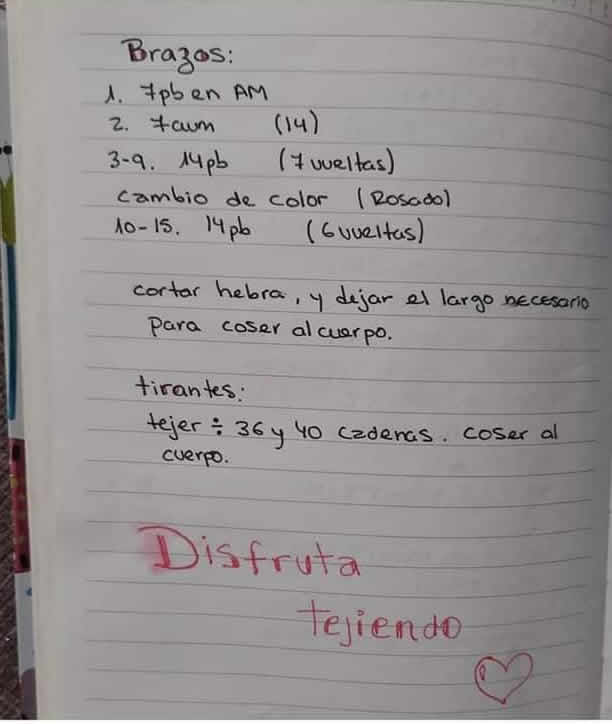 Brazos:
1. 7pb en AM
2. 7aum (14)
3-9. 14pb (7 vueltas)
cambio de color (Rosado)
10-15. 14pb (6 vueltas)
cortar hebra, y dejar el largo necesario
para coser al cuerpo.
tirantes:
tejer ÷ 36 y 40 cadenas. coser al
cuerpo.
Disfruta
tejiendo